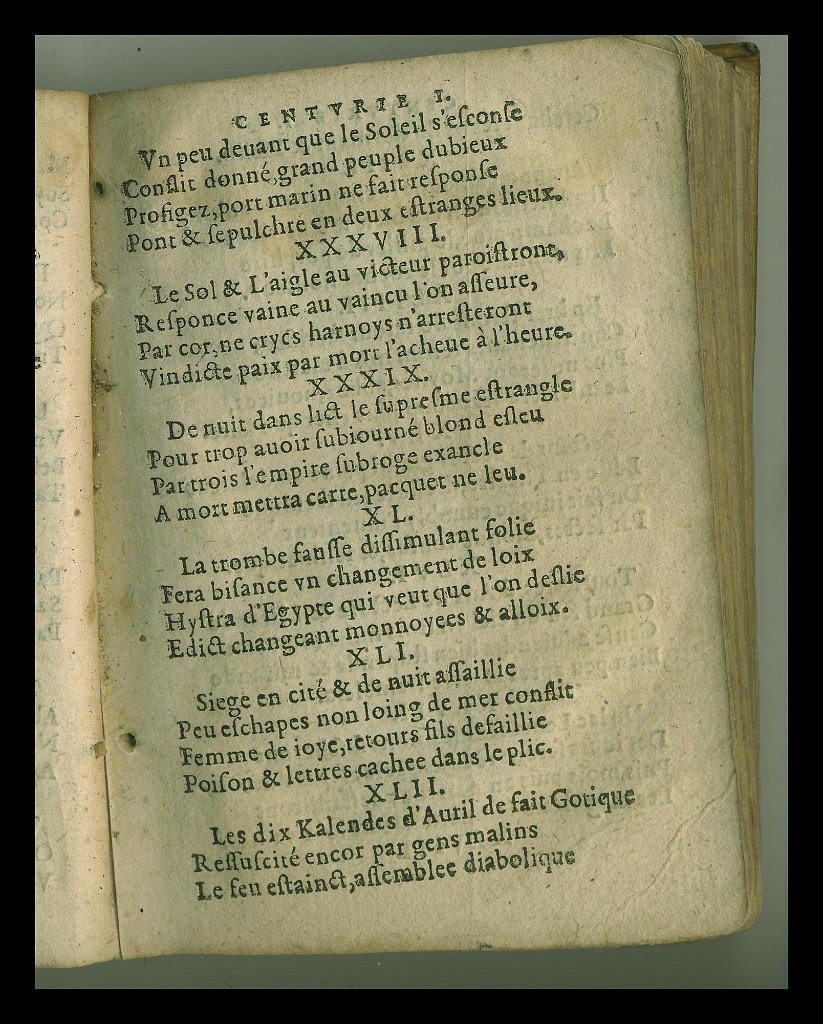 CENTVRIE I.
Vn peu deuant que le Soleil s'eſconſe
Conflit donné, grand peuple dubieux
Profigez, port marin ne fait reſponſe
Pont & ſepulchre en deux eſtranges lieux.
XXXVIII.
Le Sol & L'aigle au victeur paroiſtront,
Reſponce vaine au vaincu l'on aſſeure,
Par cor, ne cryes harnoys n'arreſteront
Vindicte paix par mort l'acheue à l'heure.
XXXIX.
De nuit dans lict le ſupreſme eſtrangle
Pour trop auoir ſubiourné blond eſleu
Par trois l'empire ſubroge exancle
A mort mettra carte, pacquet ne leu.
XL.
La trombe fauſſe diſſimulant folie
Fera biſance vn changement de loix
Hyſtra d'Egypte qui veut que l'on deſlie
Edict changeant monnoyees & alloix.
XLI.
Siege en cité & de nuit aſſaillie
Peu eſchapes non loing de mer conflit
Femme de ioye, retours fils defaillie
Poiſon & lettres cachee dans le plic.
XLII.
Les dix Kalendes d'Auril de fait Gotique
Reſſuſcité encor par gens malins
Le feu eſtainct, aſſemblee diabolique